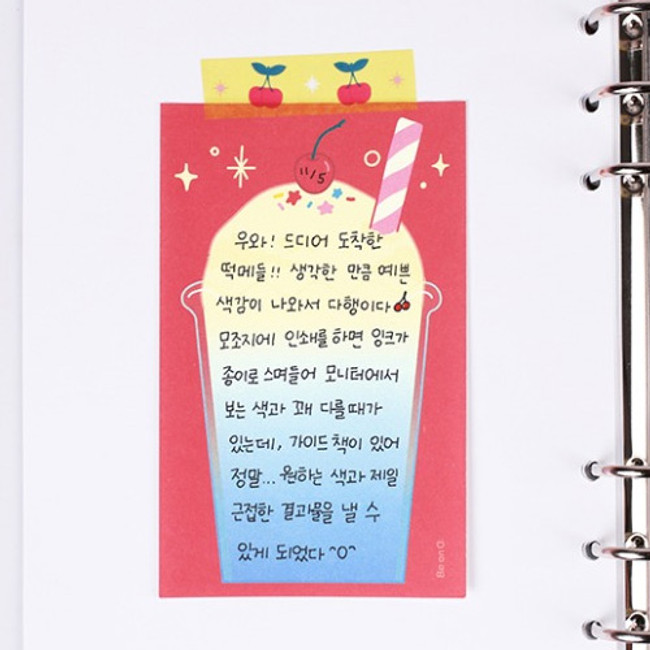 11/5
우와! 드디어 도착한
떡메들!! 생각한 만큼 예쁜
색감이 나와서 다행이다
모조지에 인쇄를 하면 잉크가
종이로 스며들어 모니터에서
보는 색과 꽤 다를때가
있는데, 가이드 책이 있어
정말... 원하는 색과 제일
근접한 결과물을 낼 수
있게 되었다 ^0^
Be on D.